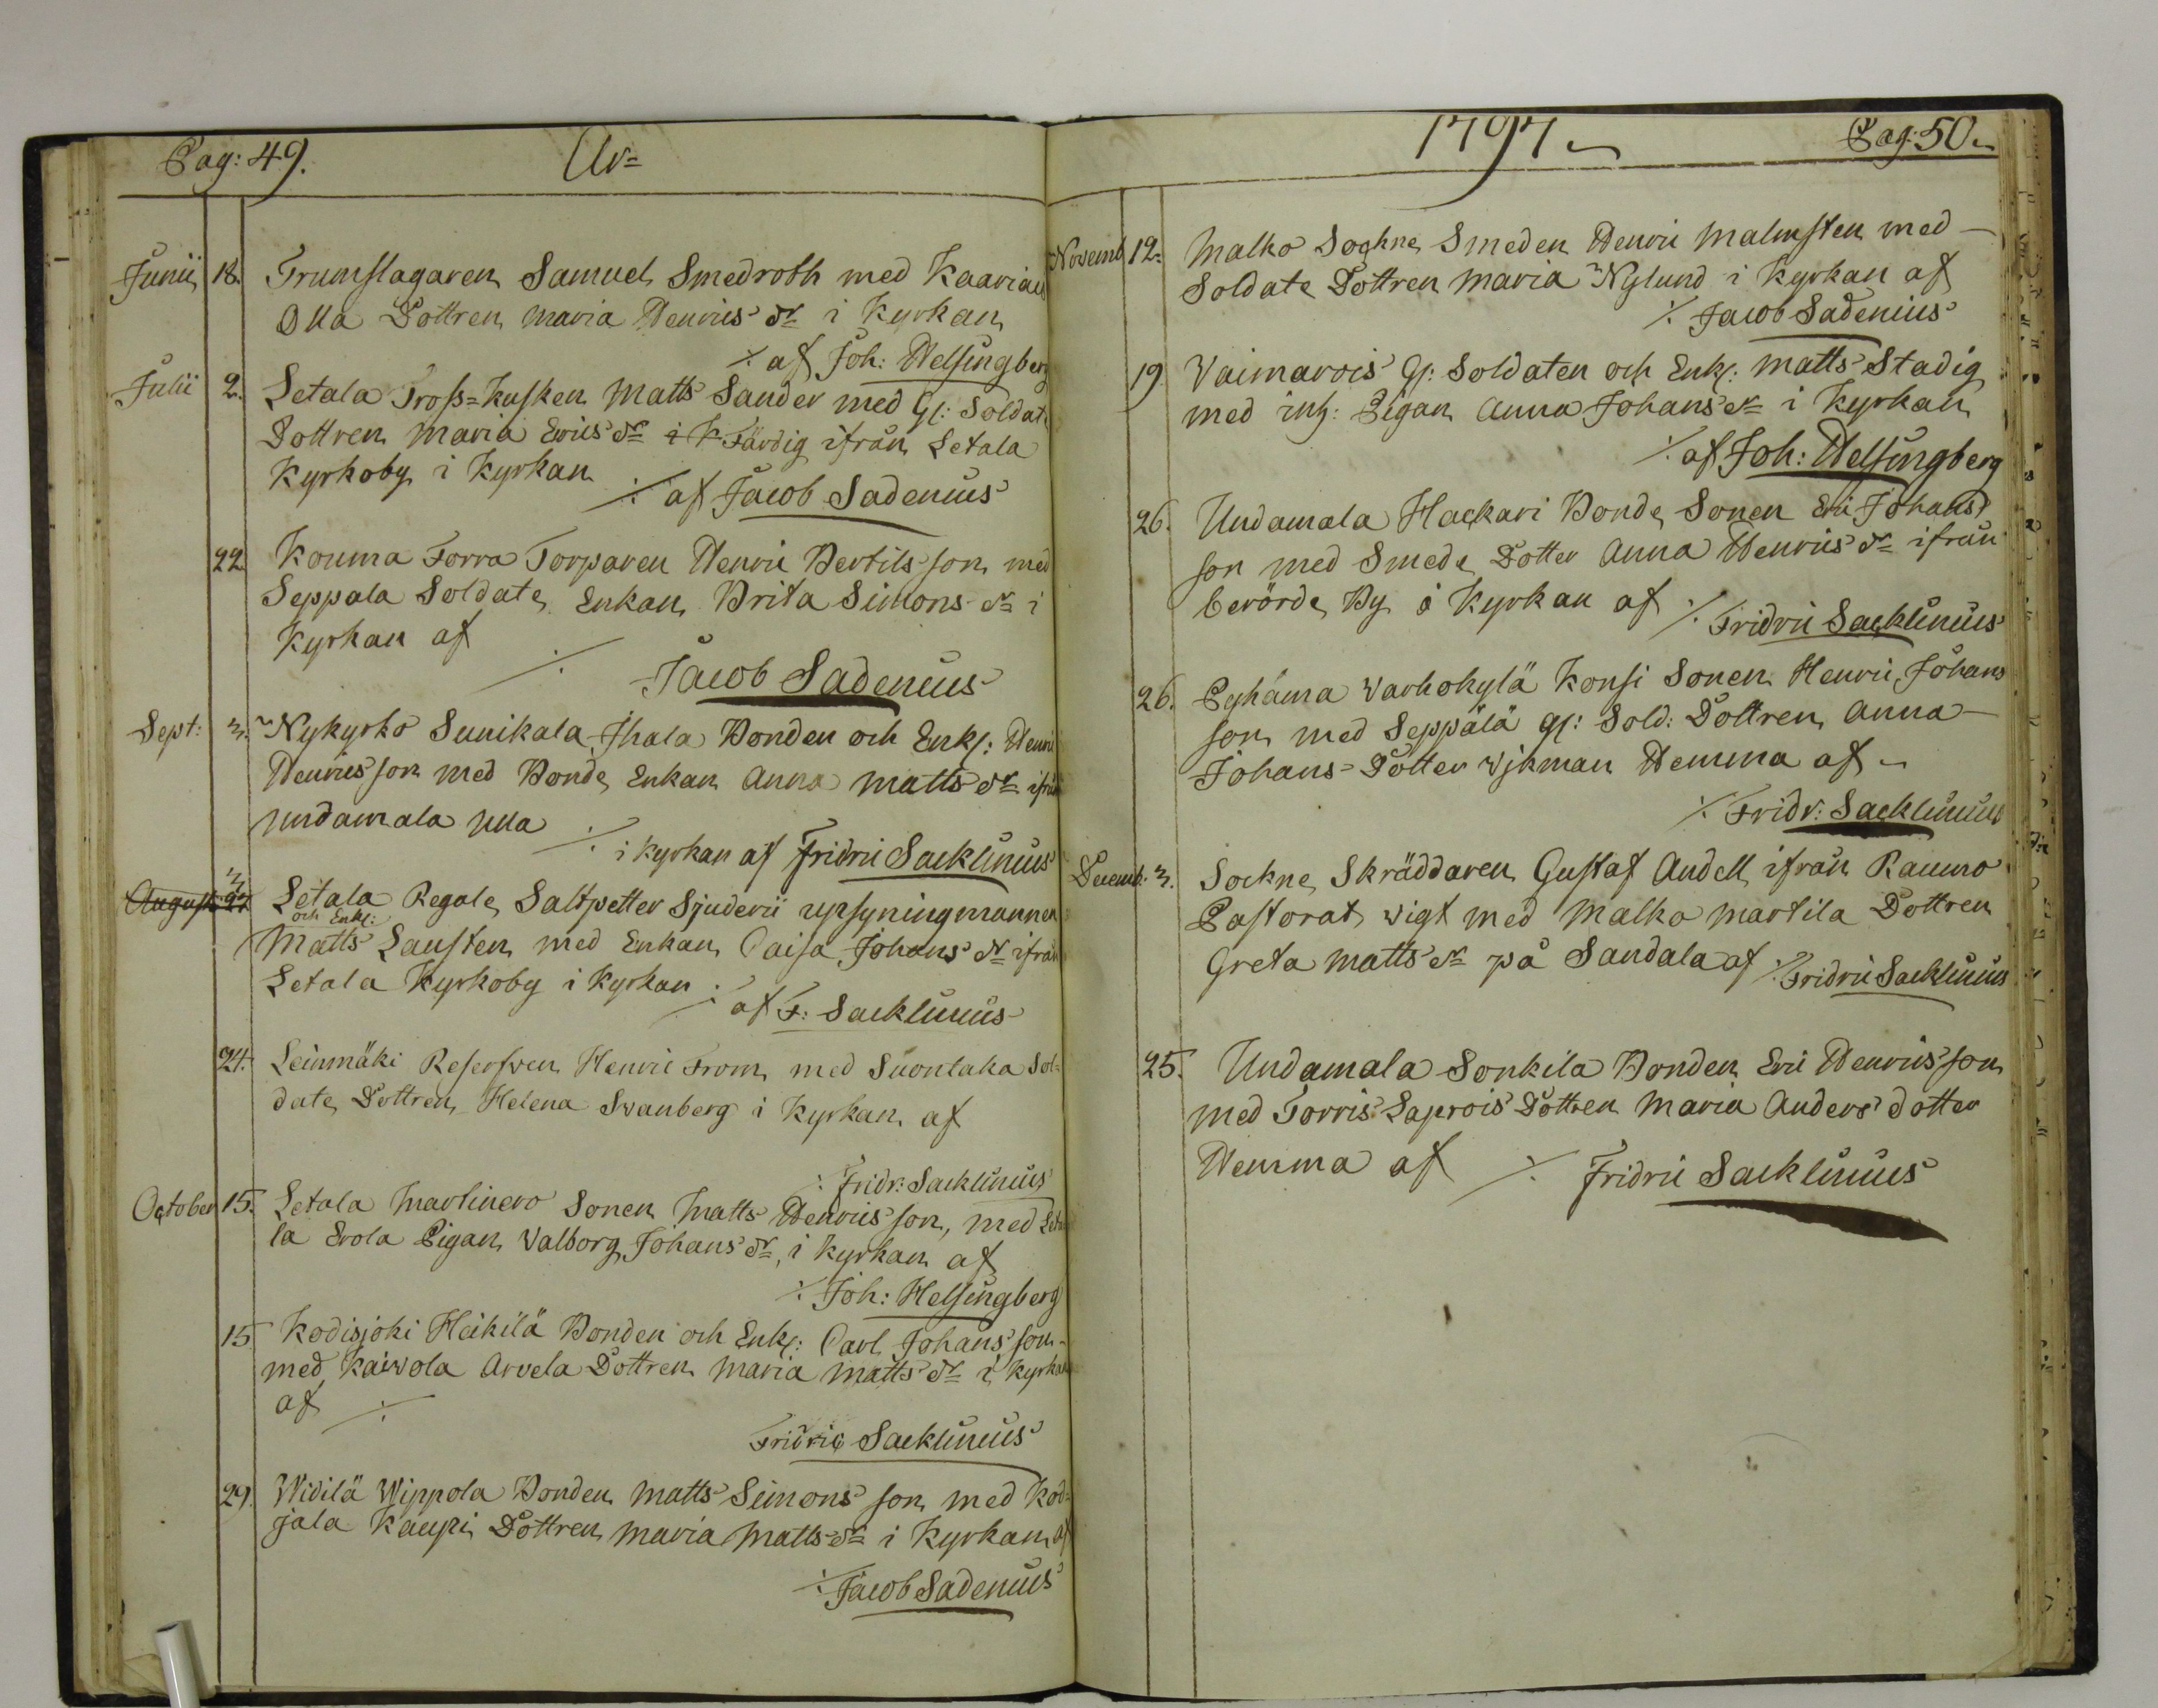 Pag: 49. År=
Junii 18. Trumslagaren Samuel Smedroth med Kaarian
Olla Dottren Maria Henrics dr i Kyrkan
⁒ af Joh: Helsingberg
Julii 2. Letala Tross=Kusken Matts Sander med Gl: Soldat
Dottren Maria Erics dr Färdig ifrån Letala
Kyrkoby i Kyrkan ⁒ af Jacob Sadenius
22. Kouma Torra Torparen Henric Bertils son med
Seppala Soldate Enkan Brita Simons dr i
Kyrkan af ⁒
Jacob Sadenius
Sept: 3. Nykyrko Sunikala Jhala Bonden och Enkl: Henric
Henrics son med Bonde Enkan Anna Matts dr ifrån
undamala ulla ⁒ i Kyrkan af Fridric Sacklinius
August: 27. 3. Letala Regale Saltpetter Sjuderii upsyningmannen
och Enkl:
Matts Lausten med Enkan Caisa Johans dr ifrån
Letala Kyrkoby i Kyrkan ⁒ af F: Sacklinius
24. Leinmäki Reserfven Henric From med Suontaka Sol=
date Dottren Helena Swanberg i Kyrkan af
⁒ Fridr: Sacklinius
October 15. Letala Martinero Sonen Matts Henrics son, med Leta
la Erola Pigan Valborg Johans dr, i Kyrkan af
⁒ Joh: Helsingberg
15 Kodisjoki Heikilä Bonden och Enkl: Carl Johans son
med Kaivola Arvela Dottren Maria Matts dr i Kyrkan
af ⁒
Fridric Sacklinius
29. Widilä Wippola Bonden Matts Simons son med Kod=
jala Kaupi Dottren Maria Matts dr i Kyrkan af
⁒ Jacob Sadenius
1797 Pag: 50
Novemb 12. Malko Sockne Smeden Henric Malmsten med
Soldate Dottren Maria Nylund i Kyrkan af
⁒ Jacob Sadenius
19 Vaimarois Gl: Soldaten och Enkl: Matts Stadig
med inh: Pigan Anna Johans dr i Kyrkan
⁒ af Joh: Helsingberg
26. Undamala Hackari Bonde Sonen Eric Johans
son med Smede Dotter Anna Henrics dr ifrån
berörde By i Kyrkan af ⁒ Fridric Sacklinius
26. Pyhäma Varhokylä Konsi Sonen Henric Johans
son med Seppälä gl: Sold: Dottren Anna
Johans=Dotter Wikman Hemma af
⁒ Fridr: Sacklinius
Decemb. 3. Sockne Skräddaren Gustaf Andell ifrån Raumo
Pastorat vigt med Malko Martila Dottren
Greta Matts dr på Sandala af ⁒ Fridric Sacklinius
25. Undamala Sonkila Bonden Eric Henrics son
med Torris Saprois Dottren Maria Anders dotter
Hemma af ⁒ Fridric Sacklinius